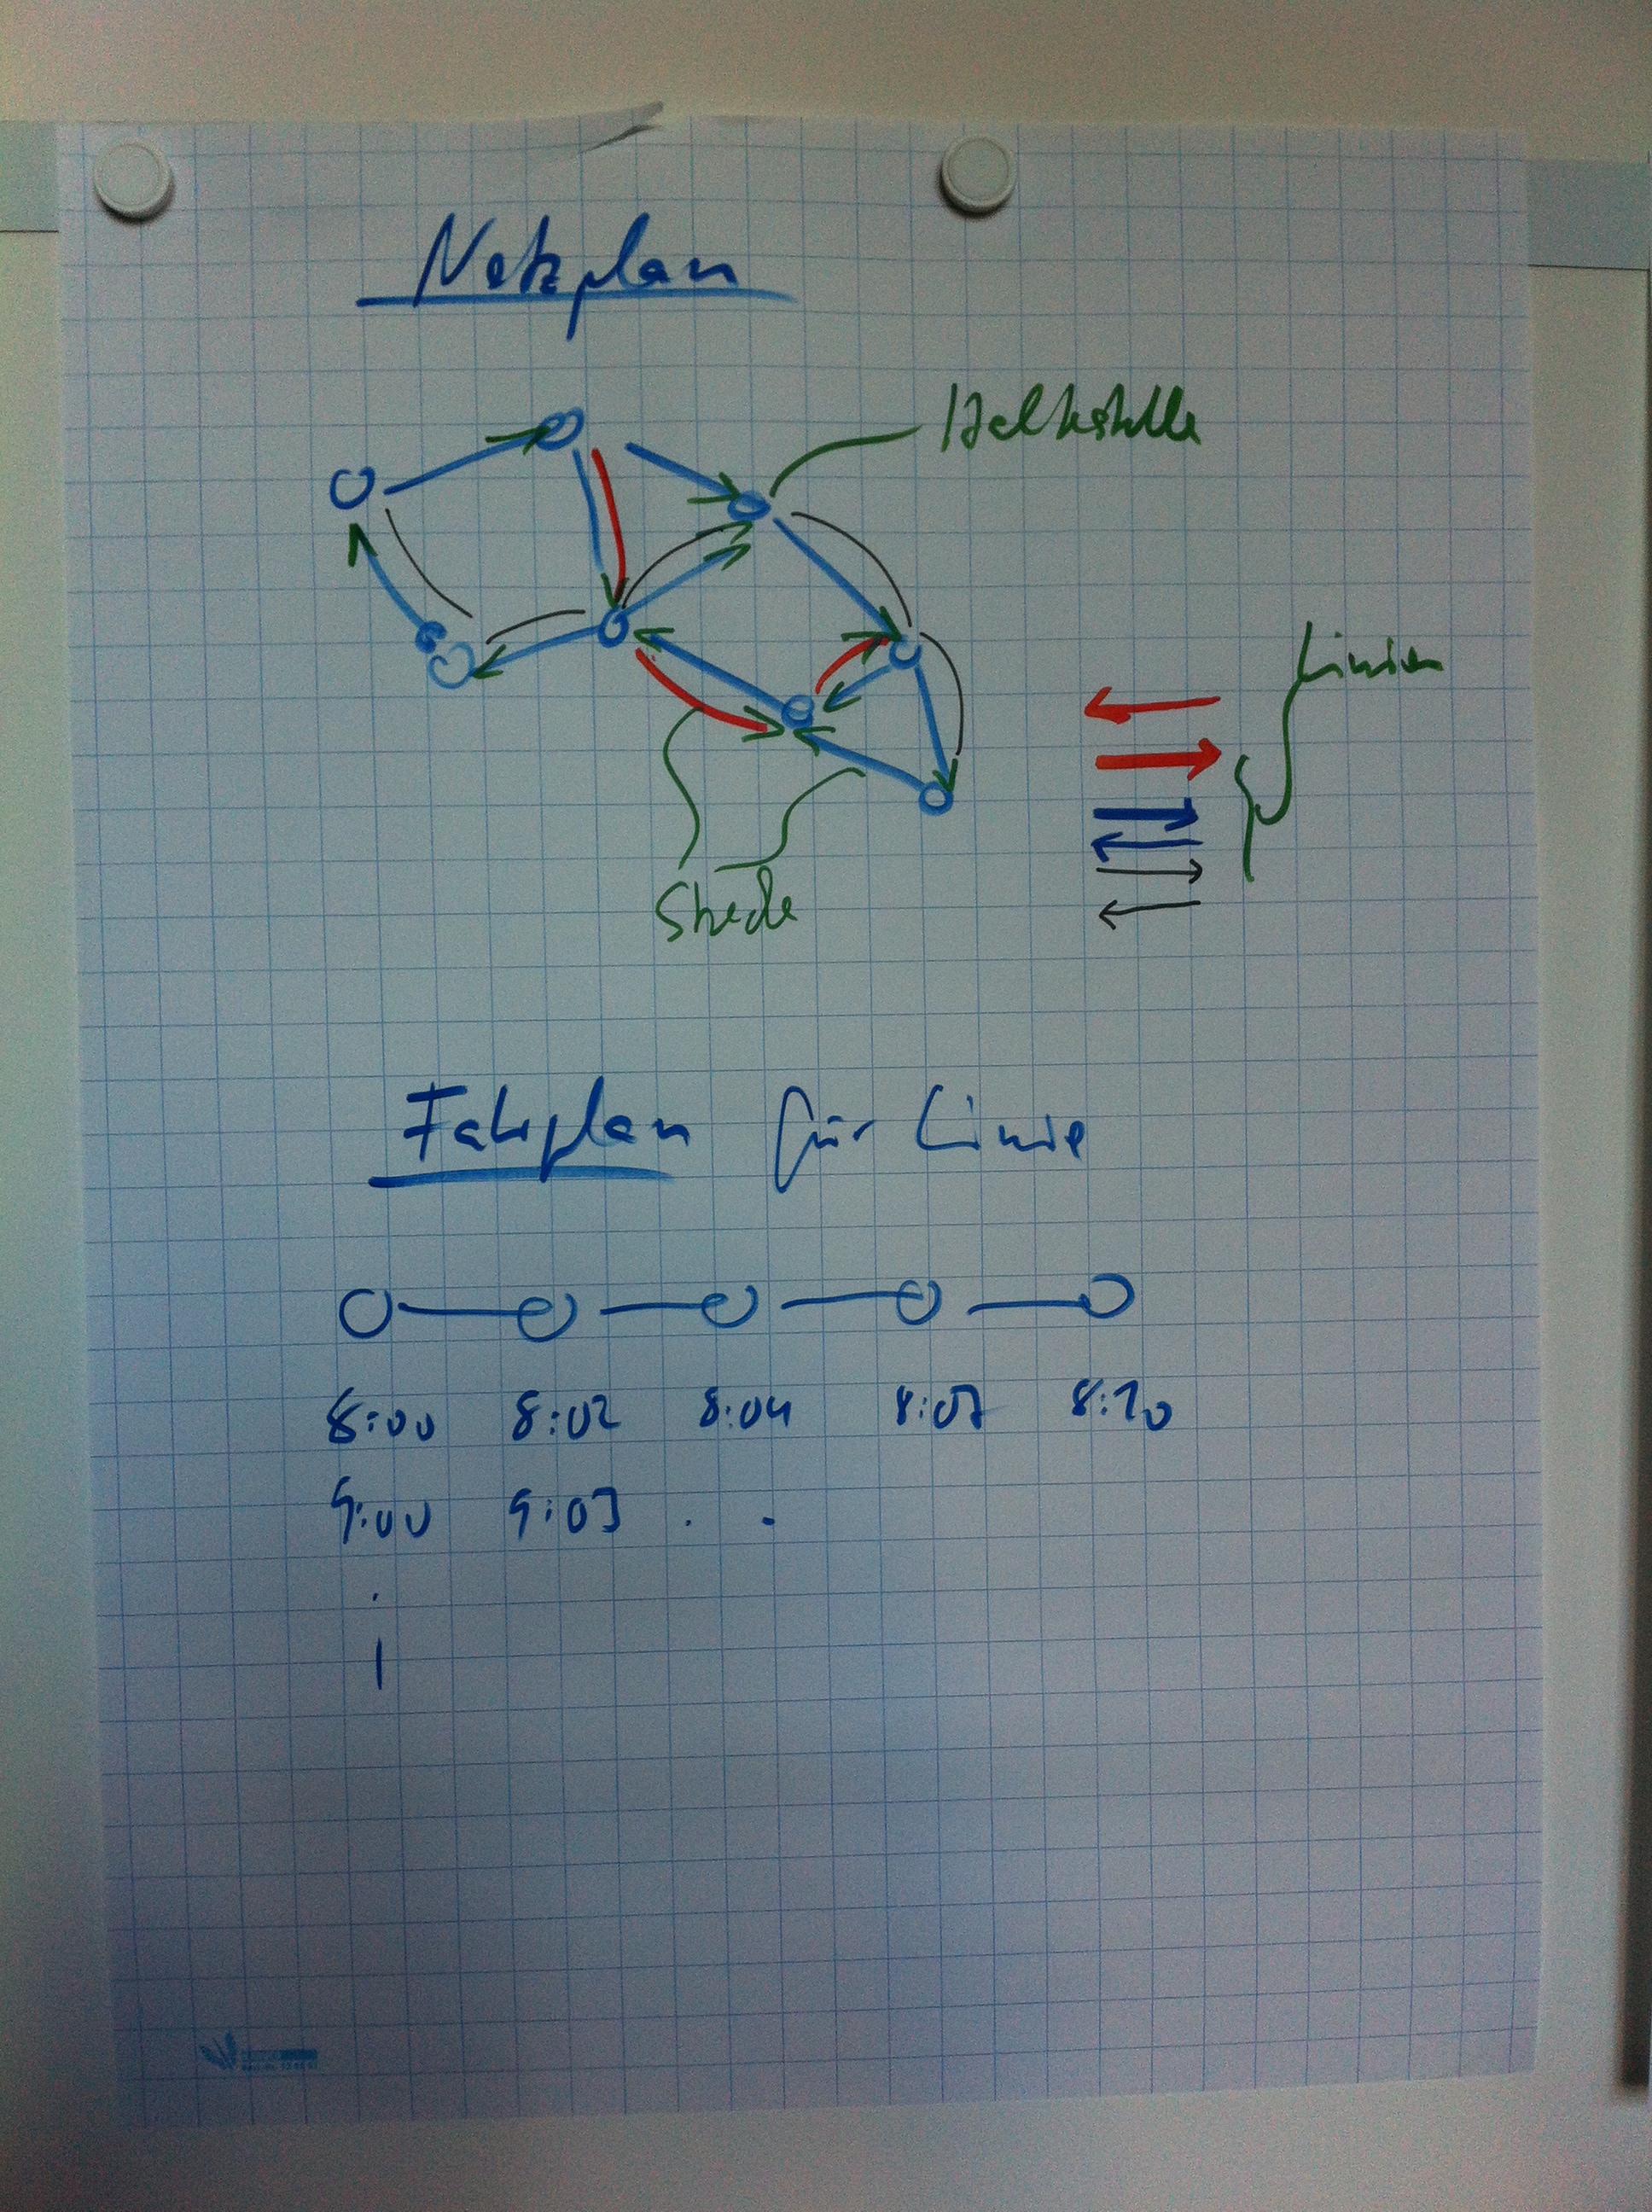 Netzplan
Haltestelle
Linien
Strecke
Fahrplan für Linie
8:00 8:02 8:04 8:07 8:10
9:00 9:03 . .